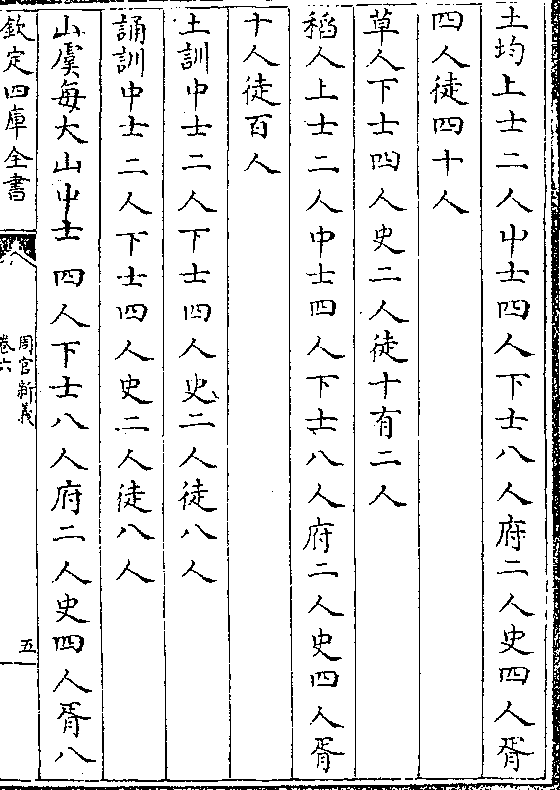 土均上士二人中士四人下士八人府二人史四人胥
四人徒四十人
草人下士四人史二人徒十有二人
稻人上士二人中士四人下士八人府二人史四人胥
十人徒百人
土訓中士二人下士四人史二人徒八人
誦訓中士二人下士四人史二人徒八人
山虞每大山中士四人下士八人府二人史四人胥八
欽定四庫全書
周官新義
卷六
五